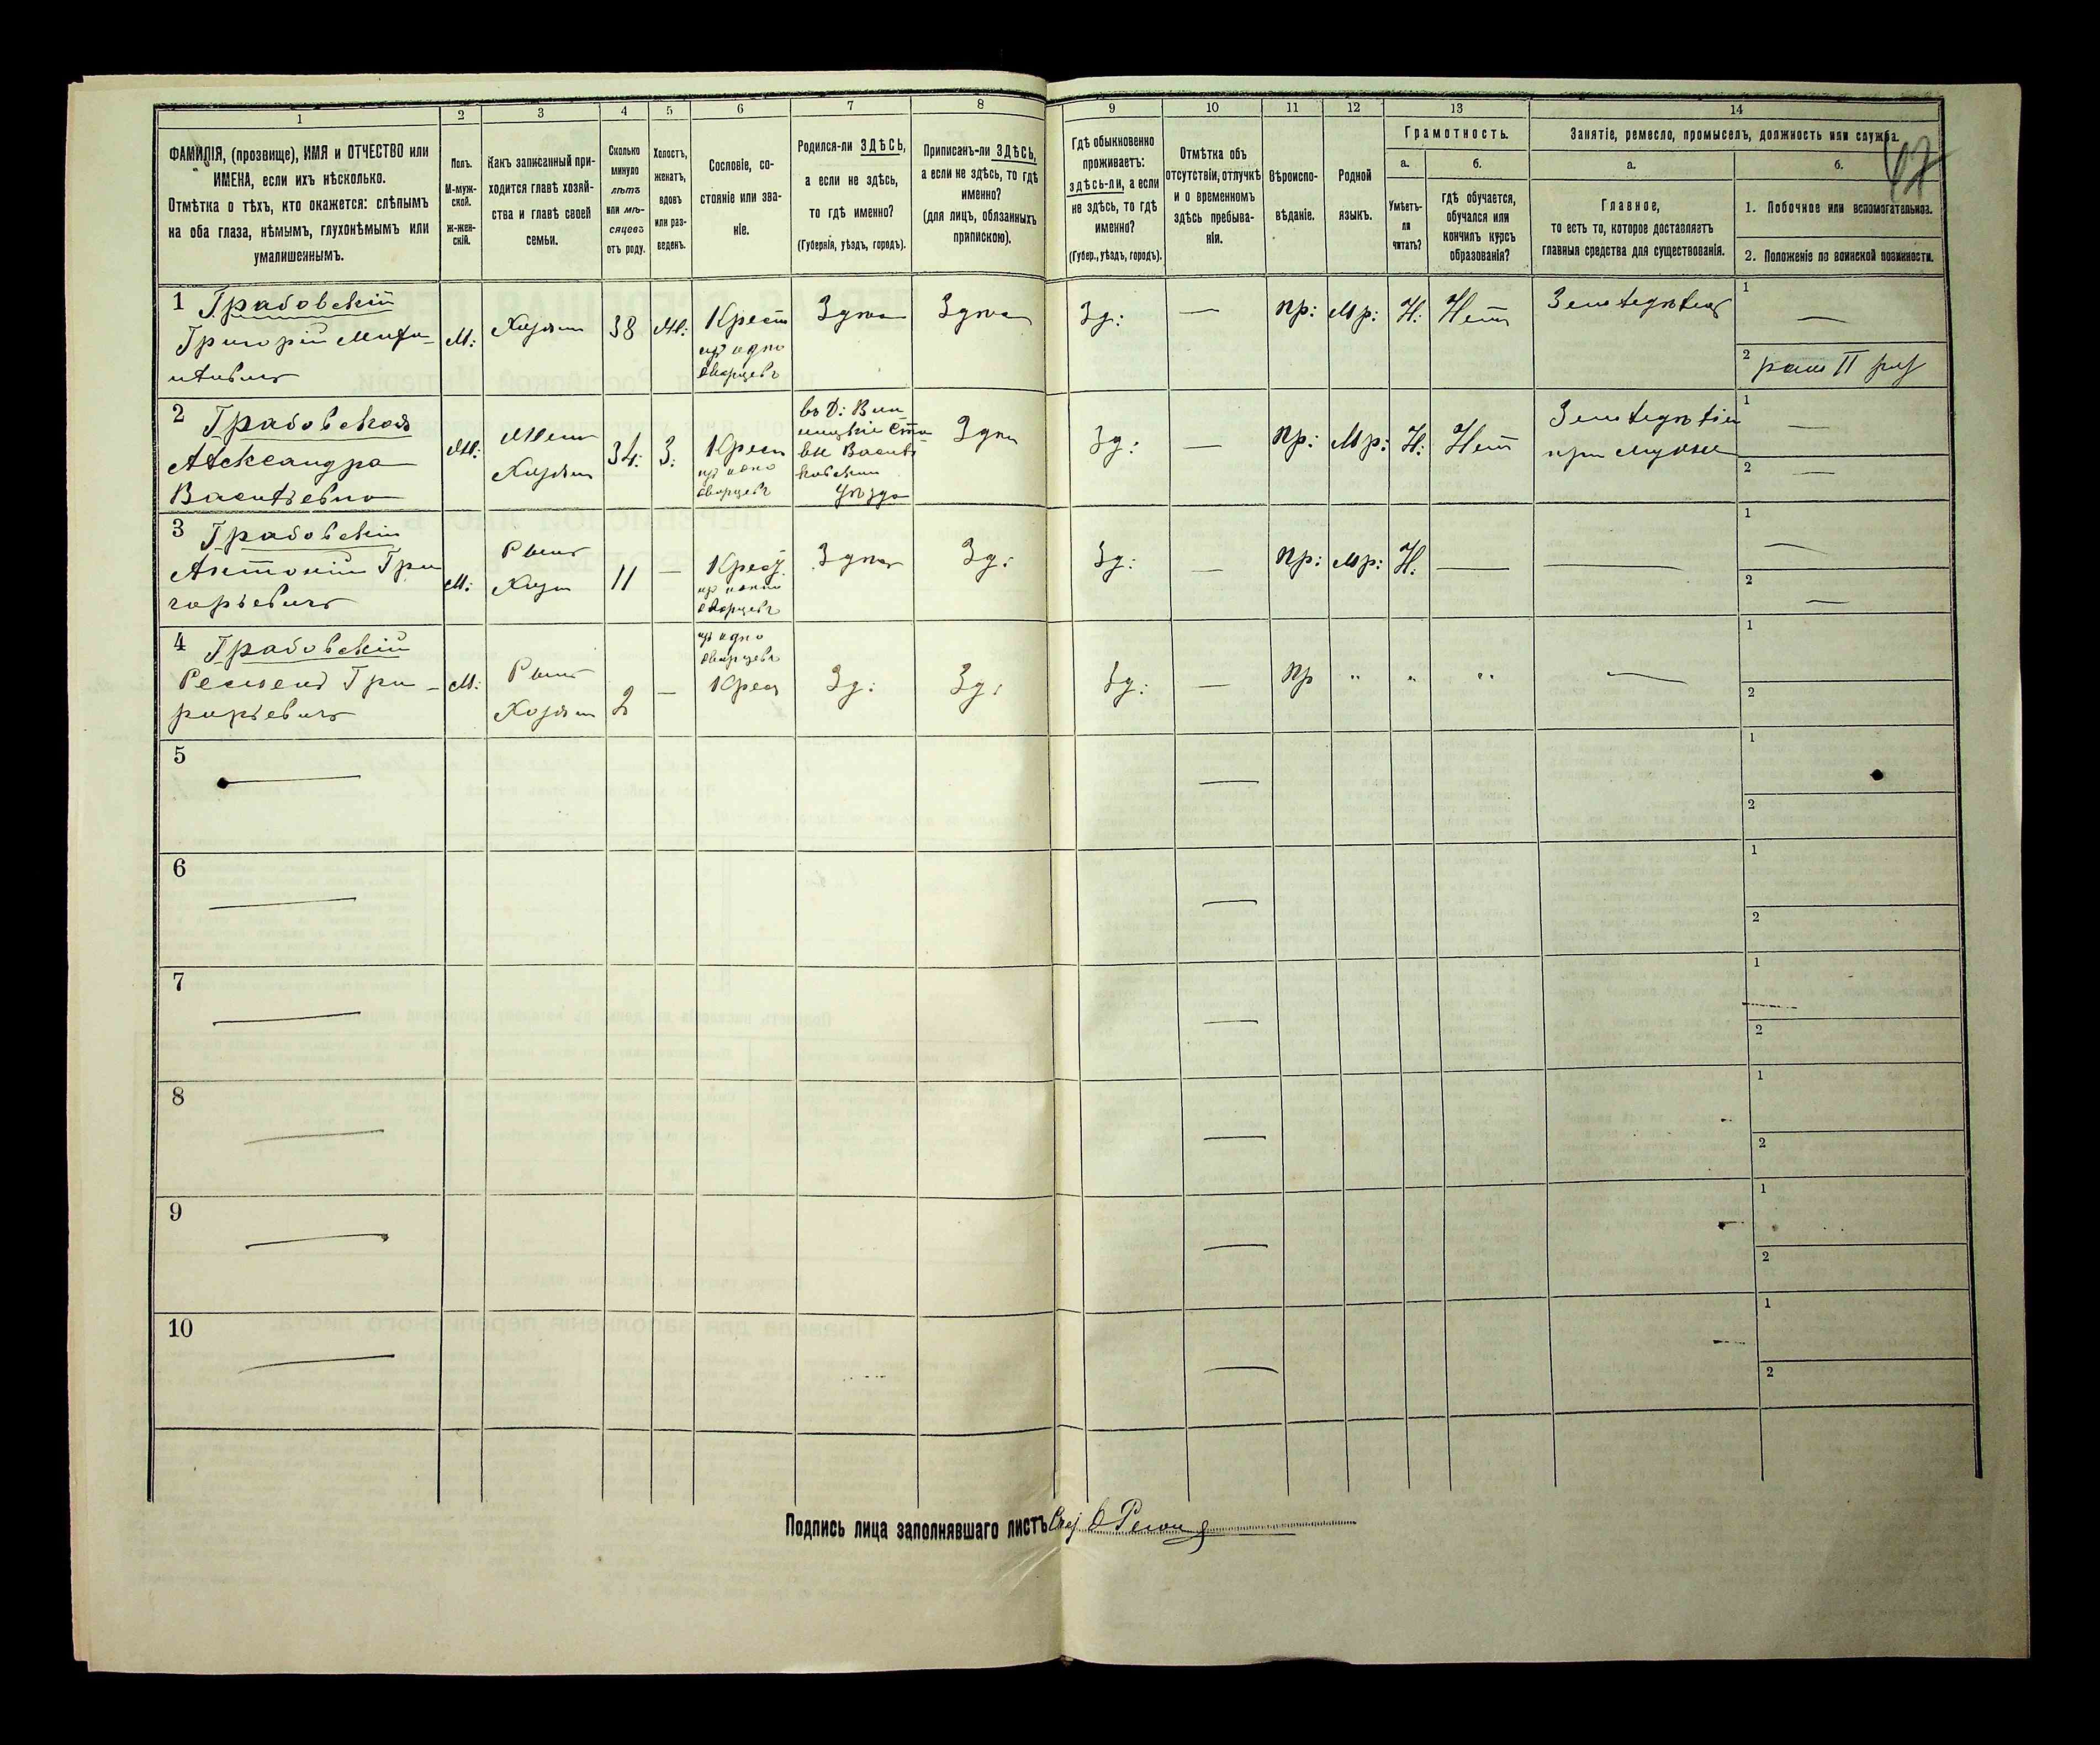 1
2
3
4
5
6
7
8
9
10
11
12
13
14
ФАМИЛІЯ, (прозвище), ИМЯ и ОТЧЕСТВО или
ИМЕНА, если ихъ нѣсколько.
Отмѣтка о тѣхъ, кто окажется: слѣпымъ
на оба глаза, нѣмымъ, глухонѣмымъ или
умалишеннымъ.
Полъ.
М-муж-
ской.
Ж-жен-
скій.
Какъ записанный при-
ходится главѣ хозяй-
ства и главѣ своей
семьи.
Сколько
минуло
лѣтъ
или мѣ-
сяцевъ
отъ роду.
Холостъ,
женатъ,
вдовъ
или раз-
веденъ.
Сословіе, со-
стояніе или зва-
ніе.
Родился-ли ЗДѢСЬ,
а если не здѣсь,
то гдѣ именно?
(Губернія, уѣздъ, городъ).
Приписанъ-ли ЗДѢСЬ,
а если не здѣсь, то гдѣ
именно?
(для лицъ, обязанныхъ
припискою).
Гдѣ обыкновенно
проживаетъ:
здѣсь-ли, а если
не здѣсь, то гдѣ
именно?
(Губер., уѣздъ, городъ).
Отмѣтка объ
отсутствіи, отлучкѣ
и о временномъ
здѣсь пребыва-
ніи.
Вѣроиспо-
вѣданіе.
Родной
языкъ.
Грамотность.
а.
б.
Умѣетъ-
ли
читать?
гдѣ обучается,
обучался или
кончилъ курсъ
образованія?
Занятіе, ремесло, промыселъ, должность или служба.
а.
б.
Главное,
то есть то, которое доставляетъ
главныя средства для существованія.
1. Побочное или вспомогательное.
2. Положеніе по воинской повинности.
1 Грабовскій
Григорій Миха-
иловичъ
М:
Хозяин
38
Ж:
Крест
из одно
дворцевъ
Здѣсь
Здѣсь
Зд:
—
пр:
Мр:
Н:
Нет
Земледѣлец
1 —
2
2 Грабовская
Александра
Васильевна
Ж:
Жена
Хозяин
34:
З:
Крест
из одно
дворцевъ
Уѣзда
Здѣсь
Зд:
—
пр:
Мр:
Н:
Нет
Земледѣліе
при мужѣ
1 —
2 —
3 Грабовскій
Антоній Гри
горьевичъ
М:
Сынъ
Хозяин
11
—
Крест
из одно
дворцевъ
Здѣсь
Зд:
Зд:
—
пр:
Мр:
Н:
—
—
1 —
2 —
4 Грабовскій
Гри-
горьевичъ
М:
Сынъ
Хозяин
2
—
из одно
дворцевъ
Крест
Зд:
Зд:
Зд:
—
пр
"
"
"
—
1
2
5 —
—
1
2
6 —
—
1
2
7 —
—
1
2
8 —
—
1
2
9 —
—
1
2
10 —
—
1
2
Подпись лица заполнявшаго листъ